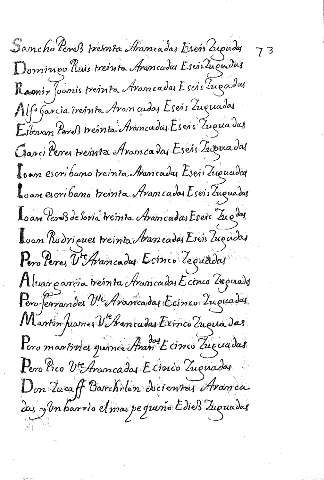 Sancho Peres treinta Arancadas Eseis Zugadas
73
Domingo Ruis treinta Arancadas Eseis Zugadas
Ramir Joanis treinta Arancadas Eseis Zugadas
Alfº Garcia treinta Arancadas Eseis Zuguadas
Estevan Peres treinta Arancadas Eseis Zuguadas
Garci Peres treinta Arancadas Eseis Zuguadas
Ioan escribano treinta Arancadas Eseis Zuguadas
Ioan escribano treinta Arancadas Eseis Zuguadas
Ioan Peres de Soria treinta Arancadas Eseis Zugadas
Ioan Rodrigues treinta Arancadas Eseis Zuguadas
Pero Peres Vte Arancadas Ecinco Zeguadas
Alvar garcia treinta Arancadas Ecinco Zuguadas
Pero ferrandes Vte Arancadas Ecinco Zuguadas
Martin Juanes Vte Arancadas Ecinco Zuguadas
Pero martines quince Arandas Ecinco Zuguadas
Pero Pico Vte Arancadas Ecinco Zuguadas
Don Zucaff Barchilon docientas Aranca
das y Un barrio el mas pequeño Edies Zuguadas